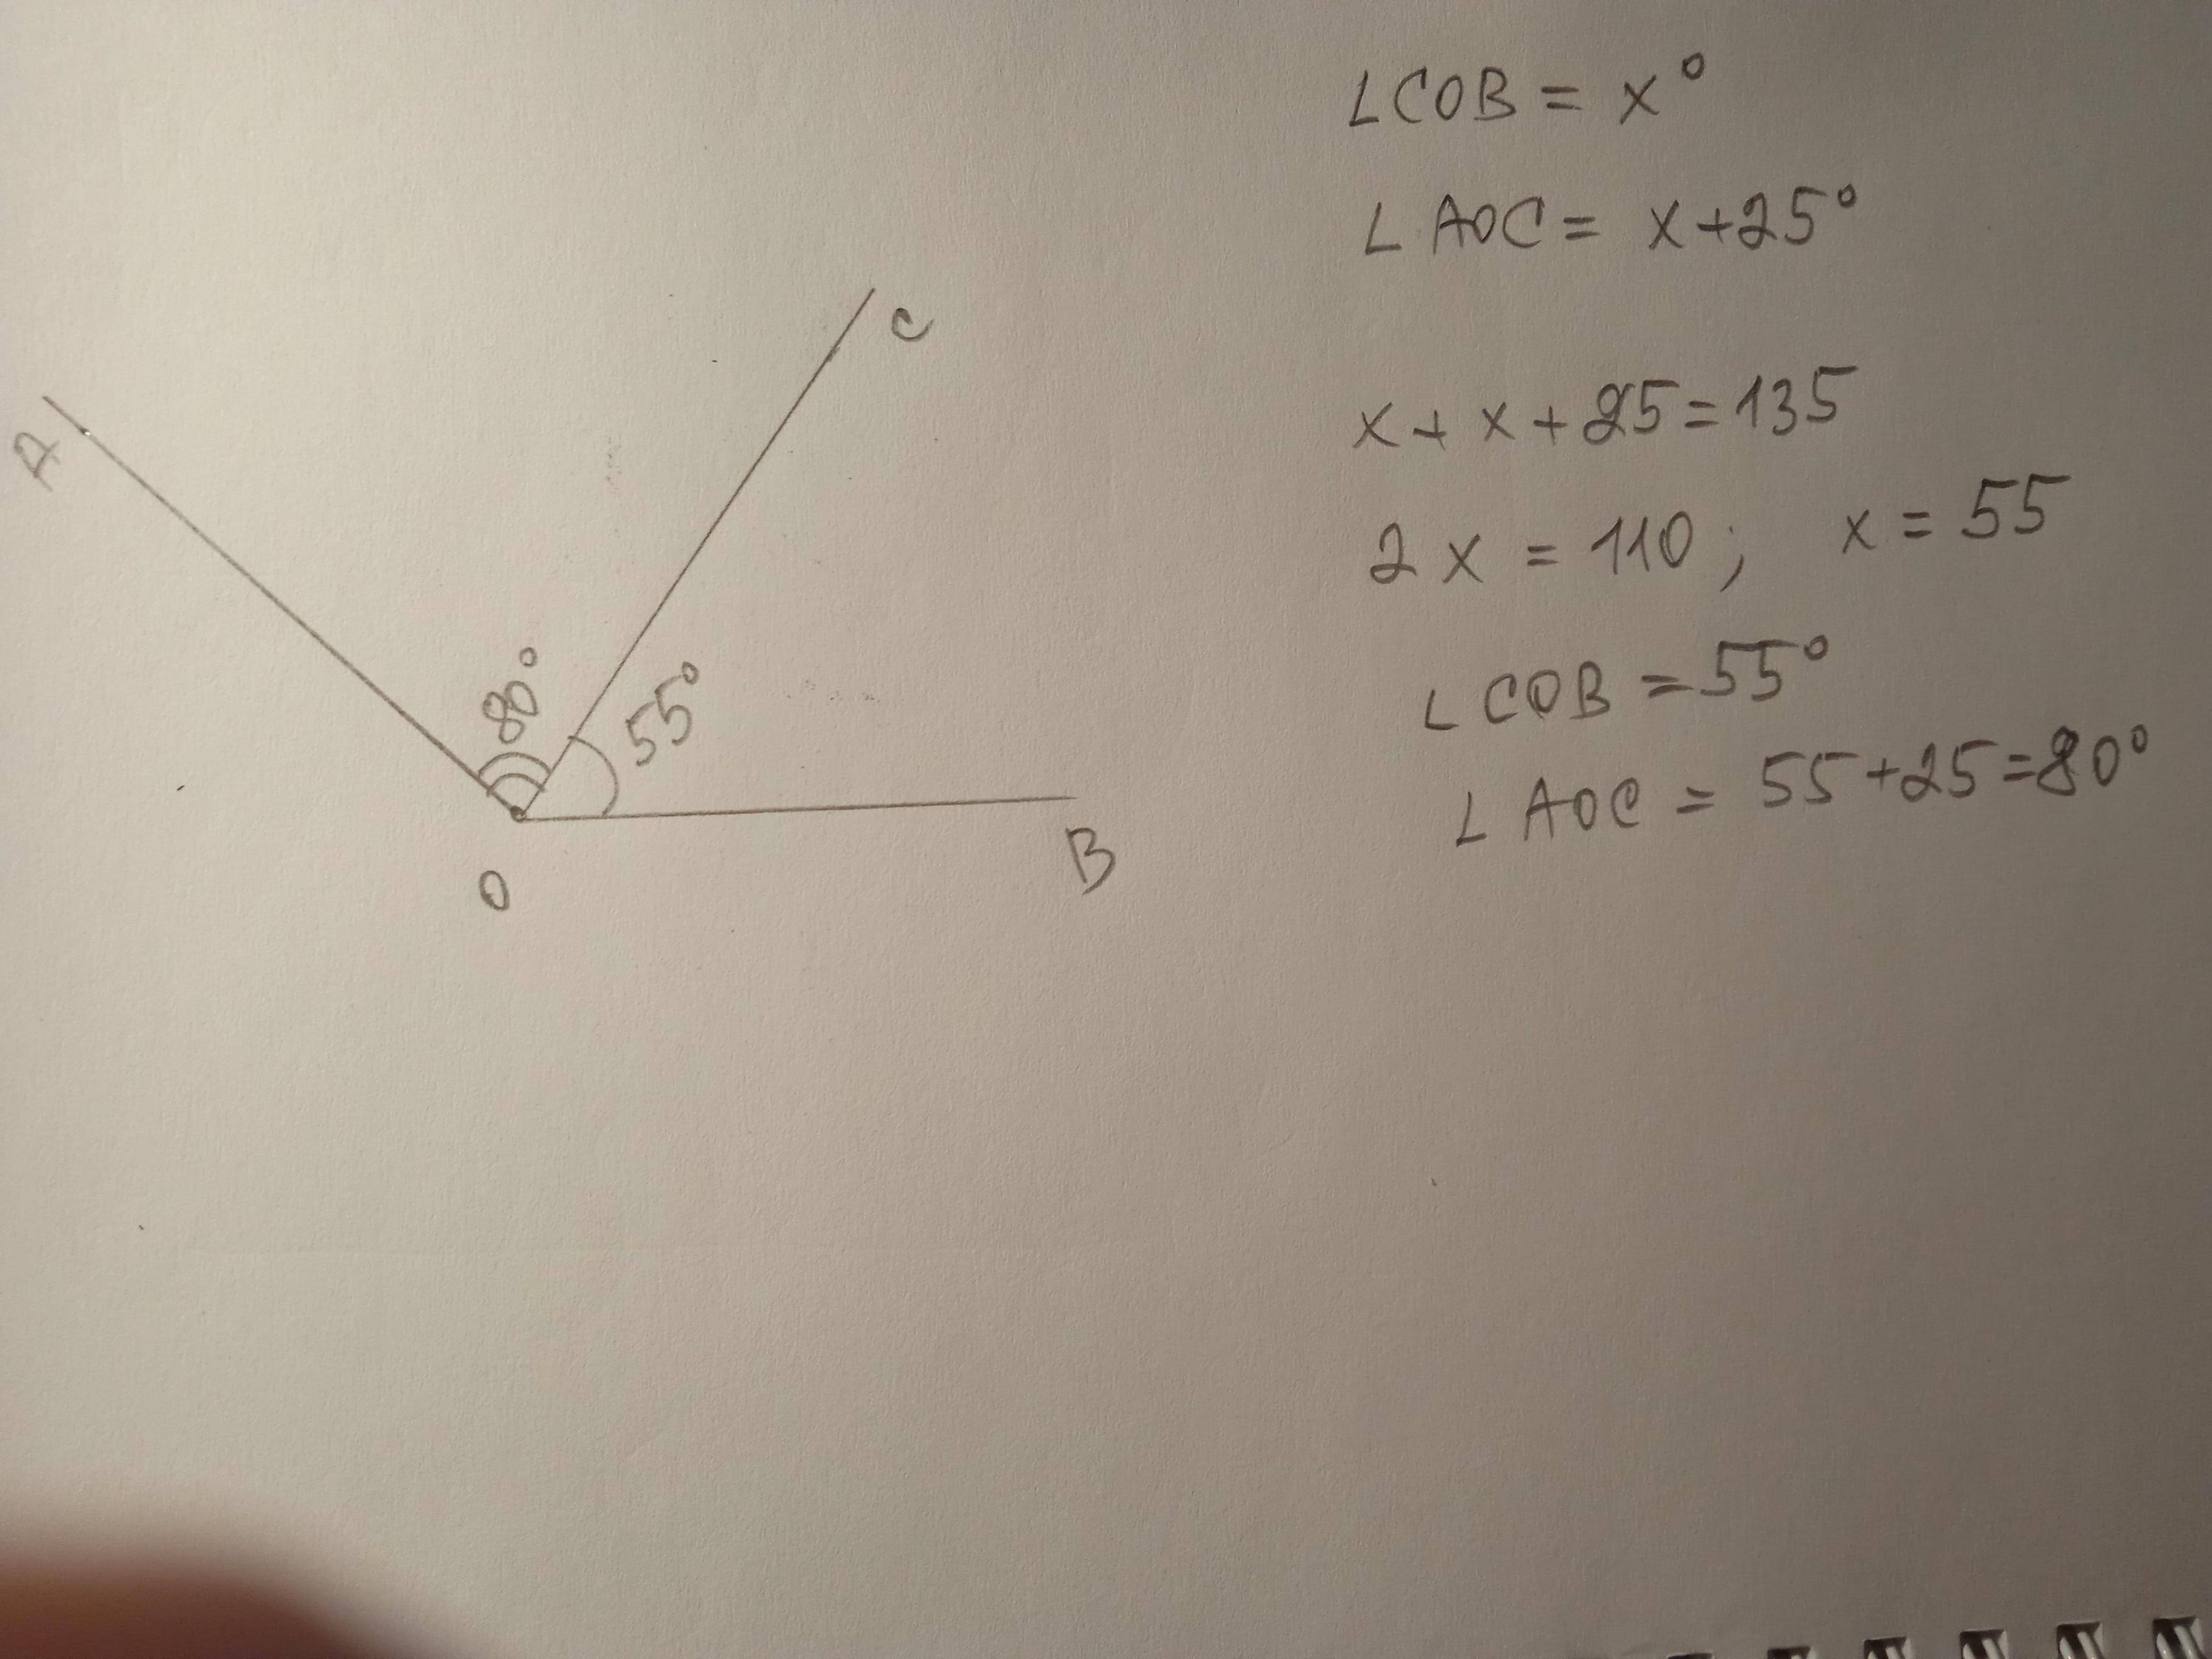 ∠COB = x°
∠AOC = x+25°
x + x + 25 = 135
2x = 110; x = 55
∠COB = 55°
∠AOC = 55+25=80°
C
A
80°
55°
B
O